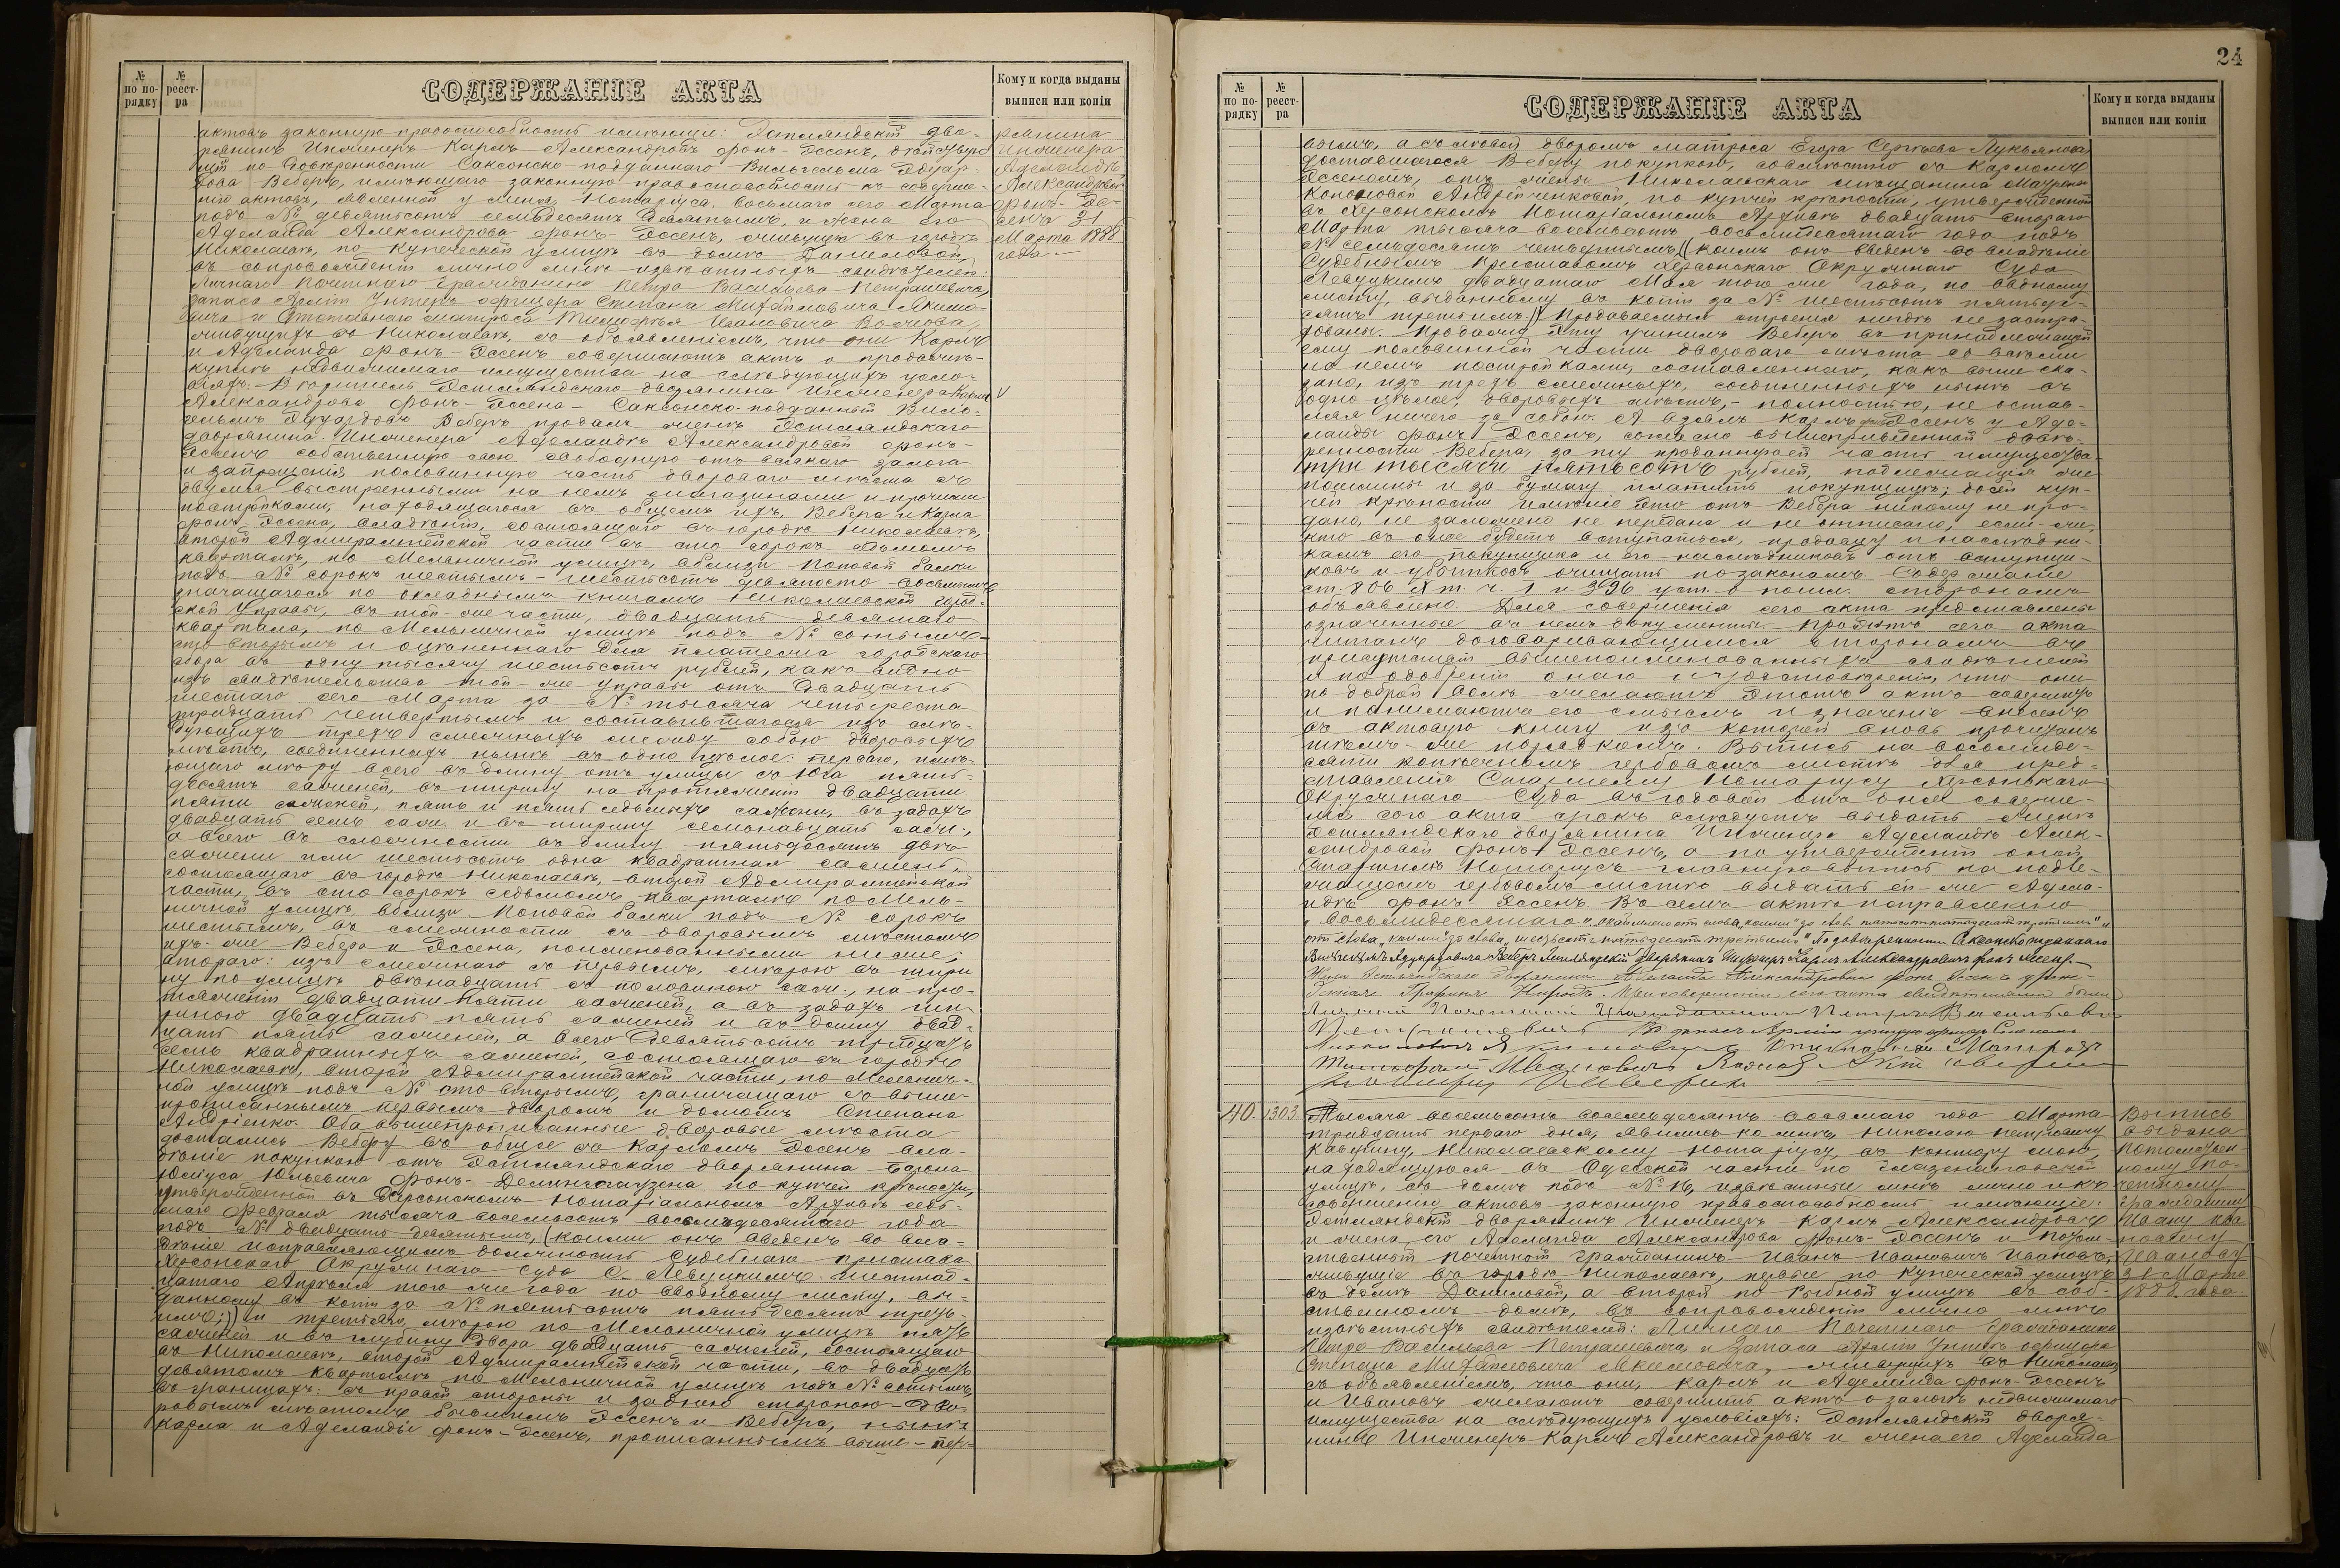 № по по-рядку
№ реест-ра
СОДЕРЖАНІЕ АКТА
Кому и когда выданы выписи или копіи
актовъ законную правоспособность имѣющіе: Эстляндскій дво-
рянинъ Инженеръ Карлъ Александровъ фонъ-Эссенъ, дѣйствую
щій по довѣренности Саксонско подданнаго Вильгельма Эдуар-
дова Веберъ, имѣющаго законную правоспособность къ соверше-
нію актовъ, явленной у меня, Нотаріуса, восьмаго сего Марта
подъ № девятьсотъ семьдесятъ девятымъ, и жена его
Аделаида Александрова фонъ-Эссенъ, живущіе въ городѣ
Николаевѣ, по Купеческой улицѣ въ домѣ Даниловой,
въ сопровожденіи лично мнѣ извѣстныхъ свидѣтелей:
Личнаго Почетнаго Гражданина Петра Васильева Петрашевича,
запаса Арміи Унтеръ офицера Степана Михайловича Якимо-
вича и Отставнаго матроса Тимофея Ивановича Волкова,
живущихъ въ Николаевѣ, съ объявленіемъ, что они Карлъ
и Аделаида фонъ-Эссенъ совершаютъ актъ о продажѣ-
куплѣ недвижимаго имущества на слѣдующихъ усло-
віяхъ: Вѣритель Эстляндскаго дворянина Инженера Карла
Александрова фонъ-Эссена - Саксонско-подданный Виль-
гельмъ Эдуардовъ Веберъ продалъ женѣ Эстляндскаго
дворянина Инженера Аделаидѣ Александровой фонъ-
Эссенъ собственную свою, свободную отъ всякаго залога
и запрещенія, половинную часть двороваго мѣста съ
двумя выстроенными на немъ магазинами и прочими
постройками, находящагося въ общемъ ихъ, Вебера и Карла
фонъ Эссена, владѣніи, состоящаго въ городѣ Николаевѣ,
второй Адмиралтейской части въ сто сорокъ седьмомъ
кварталѣ, по Мельничной улицѣ, вблизи Поповой балки
подъ № сорокъ шестымъ - шестьсотъ девяносто восьмымъ
значащагося по окладнымъ книгамъ Николаевской Город-
ской Управы, въ той-же части, двадцать девятаго
квартала, по Мельничной улицѣ подъ № сотымъ-
сто вторымъ и оцѣненнаго для платежа городскаго
сбора въ одну тысячу шестьсотъ рублей, какъ видно
изъ свидѣтельства той-же Управы отъ двадцать
шестаго сего Марта за № тысяча четыреста
тридцать четвертымъ и составившагося изъ слѣ-
дующихъ трехъ смежныхъ между собою дворовыхъ
мѣстъ, соединенныхъ нынѣ въ одно цѣлое: перваго, имѣ-
ющаго мѣру всего въ длину отъ улицы съ Юга пять-
десятъ саженей, въ ширину на протяженіи двадцати
пяти саженей, пять и пять седьмыхъ сажени, въ задахъ
двадцать семь саж. и въ ширину семнадцать саж.,
а всего въ сложности въ длину пятьдесятъ двѣ
сажени или шестьсотъ одна квадратная сажень,
состоящаго въ городѣ Николаевѣ, второй Адмиралтейской
части, въ сто сорокъ седьмомъ кварталѣ по Мель-
ничной улицѣ, вблизи Поповой балки подъ № сорокъ
шестымъ, въ смежности съ дворовымъ мѣстомъ
ихъ-же Вебера и Эссена, поименованнымъ ниже;
втораго: изъ смежнаго съ первымъ, мѣрою въ шири
ну по улицѣ двѣнадцать съ половиною саж., на про-
тяженіи двадцати пяти саженей, а въ задахъ ши-
риною двадцать пять саженей и въ длину двад-
цать пять саженей, а всего девятьсотъ тридцать
семь квадратныхъ саженей, состоящаго въ городѣ
Николаевѣ, второй Адмиралтейской части, по Мельнич-
ной улицѣ подъ № сто вторымъ, граничащаго съ выше-
прописаннымъ первымъ дворомъ и домомъ Степана
Андріенко. Оба вышепрописанные дворовые мѣста
достались Веберу въ общее съ Карломъ Эссенъ вла-
дѣніе покупкою отъ Эстляндскаго дворянина Барона
Юліуса Юльевича фонъ-Деллингсгаузена по купчей крѣпости,
утвержденной въ Херсонскомъ Нотаріальномъ Архивѣ седь-
маго Февраля тысяча восемьсотъ восьмидесятаго года
подъ № двадцать девятымъ, (коими онъ введенъ во вла-
дѣніе исправляющимъ должность Судебнаго пристава
Херсонскаго Окружнаго Суда С. Левицкимъ шестнад-
цатаго Апрѣля того же года по вводному листу, вы-
данному въ копіи за № пятьсотъ пятьдесятъ треть
имъ;) и третьяго, мѣрою по Мельничной улицѣ пять
саженей и въ глубину двора двадцать саженей, состоящаго
въ Николаевѣ, второй Адмиралтейской части, въ двадцать
девятомъ кварталѣ по Мельничной улицѣ подъ № сотымъ,
въ границахъ: съ правой стороны и заднею стороною - дво-
ровымъ мѣстомъ бывшимъ Эссенъ и Вебера, нынѣ
Карла и Аделаиды фонъ-Эссенъ, прописаннымъ выше - пер-
рянина
Инженера
Аделаидѣ
Александровой
фонъ-Эс-
сенъ 31
Марта 1888
года.-
24
№ по по-рядку
№ реест-ра
СОДЕРЖАНІЕ АКТА
Кому и когда выданы выписи или копіи
вымъ, а съ лѣвой дворомъ матроса Егора Сергѣева Лукьянова
доставшагося Веберу покупкою, совмѣстно съ Карломъ
Эссеномъ, отъ жены Николаевскаго мѣщанина
Андрейченковой, по купчей крѣпости, утвержденной
въ Херсонскомъ Нотаріальномъ Архивѣ двадцать втораго
Марта тысяча восемьсотъ восьмидесятаго года подъ
№ семьдесятъ четвертымъ, (коимъ онъ введенъ во владѣніе
Судебнымъ Приставомъ Херсонскаго Окружнаго Суда
Левицкимъ двадцатаго Мая того же года, по вводному
листу, выданному въ копіи за № шестьсотъ пятьде-
сятъ третьимъ.) Продаваемыя строенія нигдѣ не застра-
хованы. Продажу эту учинилъ Веберъ въ принадлежащей
ему половинной части двороваго мѣста со всѣми
на немъ постройками, составленнаго, какъ выше ска-
зано, изъ трехъ смежныхъ, соединенныхъ нынѣ въ
одно цѣлое, дворовыхъ мѣстъ, - полностью, не остав-
ляя ничего за собою. А взялъ Карлъ фонъ Эссенъ у Аде-
лаиды фонъ Эссенъ, согласно вышеприведенной довѣ-
ренности Вебера, за ту проданную ей часть имущества
три тысячи пятьсотъ рублей, надлежащія же
пошлины и за бумагу платитъ покупщица; до сей куп-
чей крѣпости имѣніе это отъ Вебера никому не про-
дано, не заложено не передано и не отписано, если-же,
кто въ оное будетъ вступаться, продавцу и наслѣдни-
камъ его покупщика и его наслѣдниковъ отъ вступщи-
ковъ и убытковъ очищать по законамъ. Содержаніе
ст. 806 X т. ч. 1 и 396 уст. о пошл. сторонамъ
объявлено. Для совершенія сего акта представлены
означенные въ немъ документы. Проэктъ сего акта
читанъ договаривающимися сторонамъ въ
присутствіи вышепоименованныхъ свидѣтелей
и по одобреніи онаго и удостовѣреніи, что они
по доброй волѣ желаютъ этотъ актъ совершить
и понимаютъ его смыслъ и значеніе внесенъ
въ актовую книгу изъ которой вновь прочитанъ
тѣмъ-же порядкомъ. Выпись на восемьде-
сяти копѣечномъ гербовомъ листѣ для пред-
ставленія Старшему Нотаріусу Херсонскаго
Окружнаго Суда въ годовой отъ дня соверше-
нія сего акта срокъ слѣдуетъ выдать женѣ
Эстляндскаго дворянина Инженера Аделаидѣ Алек-
сандровой фонъ-Эссенъ, а по утвержденіи оной
Старшимъ Нотаріусомъ главную выпись на подле-
жащемъ гербовомъ листѣ выдать ей-же Аделаи-
дѣ фонъ Эссенъ. Въ семъ актѣ поправлено
„восьмидесятаго",
отъ слова „коимъ" до слова „шестьсотъ пятьдесятъ третьимъ". По довѣренности Саксонско подданнаго
Вильгельма Эдуардовича Веберъ Эстляндскій дворянинъ Инженеръ Карлъ Александровичъ фонъ Эссенъ.-
Жена Эстляндскаго дворянина Аделаида Александровна фонъ Эссенъ
При совершеніи сего акта свидѣтелями были
Личный Почетный Гражданинъ Петръ Васильевъ
Петрашевичъ Запаса Арміи унтеръ офицеръ Степанъ
Михайловичъ Якимовичъ Отставной Матросъ
Тимофей Ивановичъ Волковъ
40. 1303.
Тысяча восемьсотъ восемьдесятъ восьмаго года Марта
тридцать перваго дня, явились ко мнѣ, Николаю Петровичу
Кавурину, Николаевскому Нотаріусу, въ контору мою,
находящуюся въ Одесской части по Глазенаповской
улицѣ, въ домѣ подъ № 16, извѣстные мнѣ лично и къ
совершенію актовъ законную правоспособность имѣющіе:
Эстляндскій дворянинъ Инженеръ Карлъ Александровъ
и жена его Аделаида Александрова фонъ-Эссенъ и потом-
ственный почетный гражданинъ Иванъ Ивановичъ Ивановъ,
живущіе въ городѣ Николаевѣ, первые по Купеческой улицѣ
въ домѣ Даниловой, а второй по Рыбной улицѣ въ соб-
ственномъ домѣ, въ сопровожденіи лично мнѣ
извѣстныхъ свидѣтелей: Личнаго Почетнаго Гражданина
Петра Васильева Петрашевича и Запаса Арміи Унтеръ офицера
Степана Михайловича Якимовича, живущихъ въ Николаевѣ,
съ объявленіемъ, что они, Карлъ и Аделаида фонъ-Эссенъ
и Ивановъ желаютъ совершить актъ о залогѣ недвижимаго
имущества на слѣдующихъ условіяхъ: Эстляндскій дворя-
нинъ Инженеръ Карлъ Александровъ и жена его Аделаида
Выпись
выдана
потомствен-
ному по-
четному
гражданину
Ивану Ива
новичу
Иванову
31 Марта
1888 года.